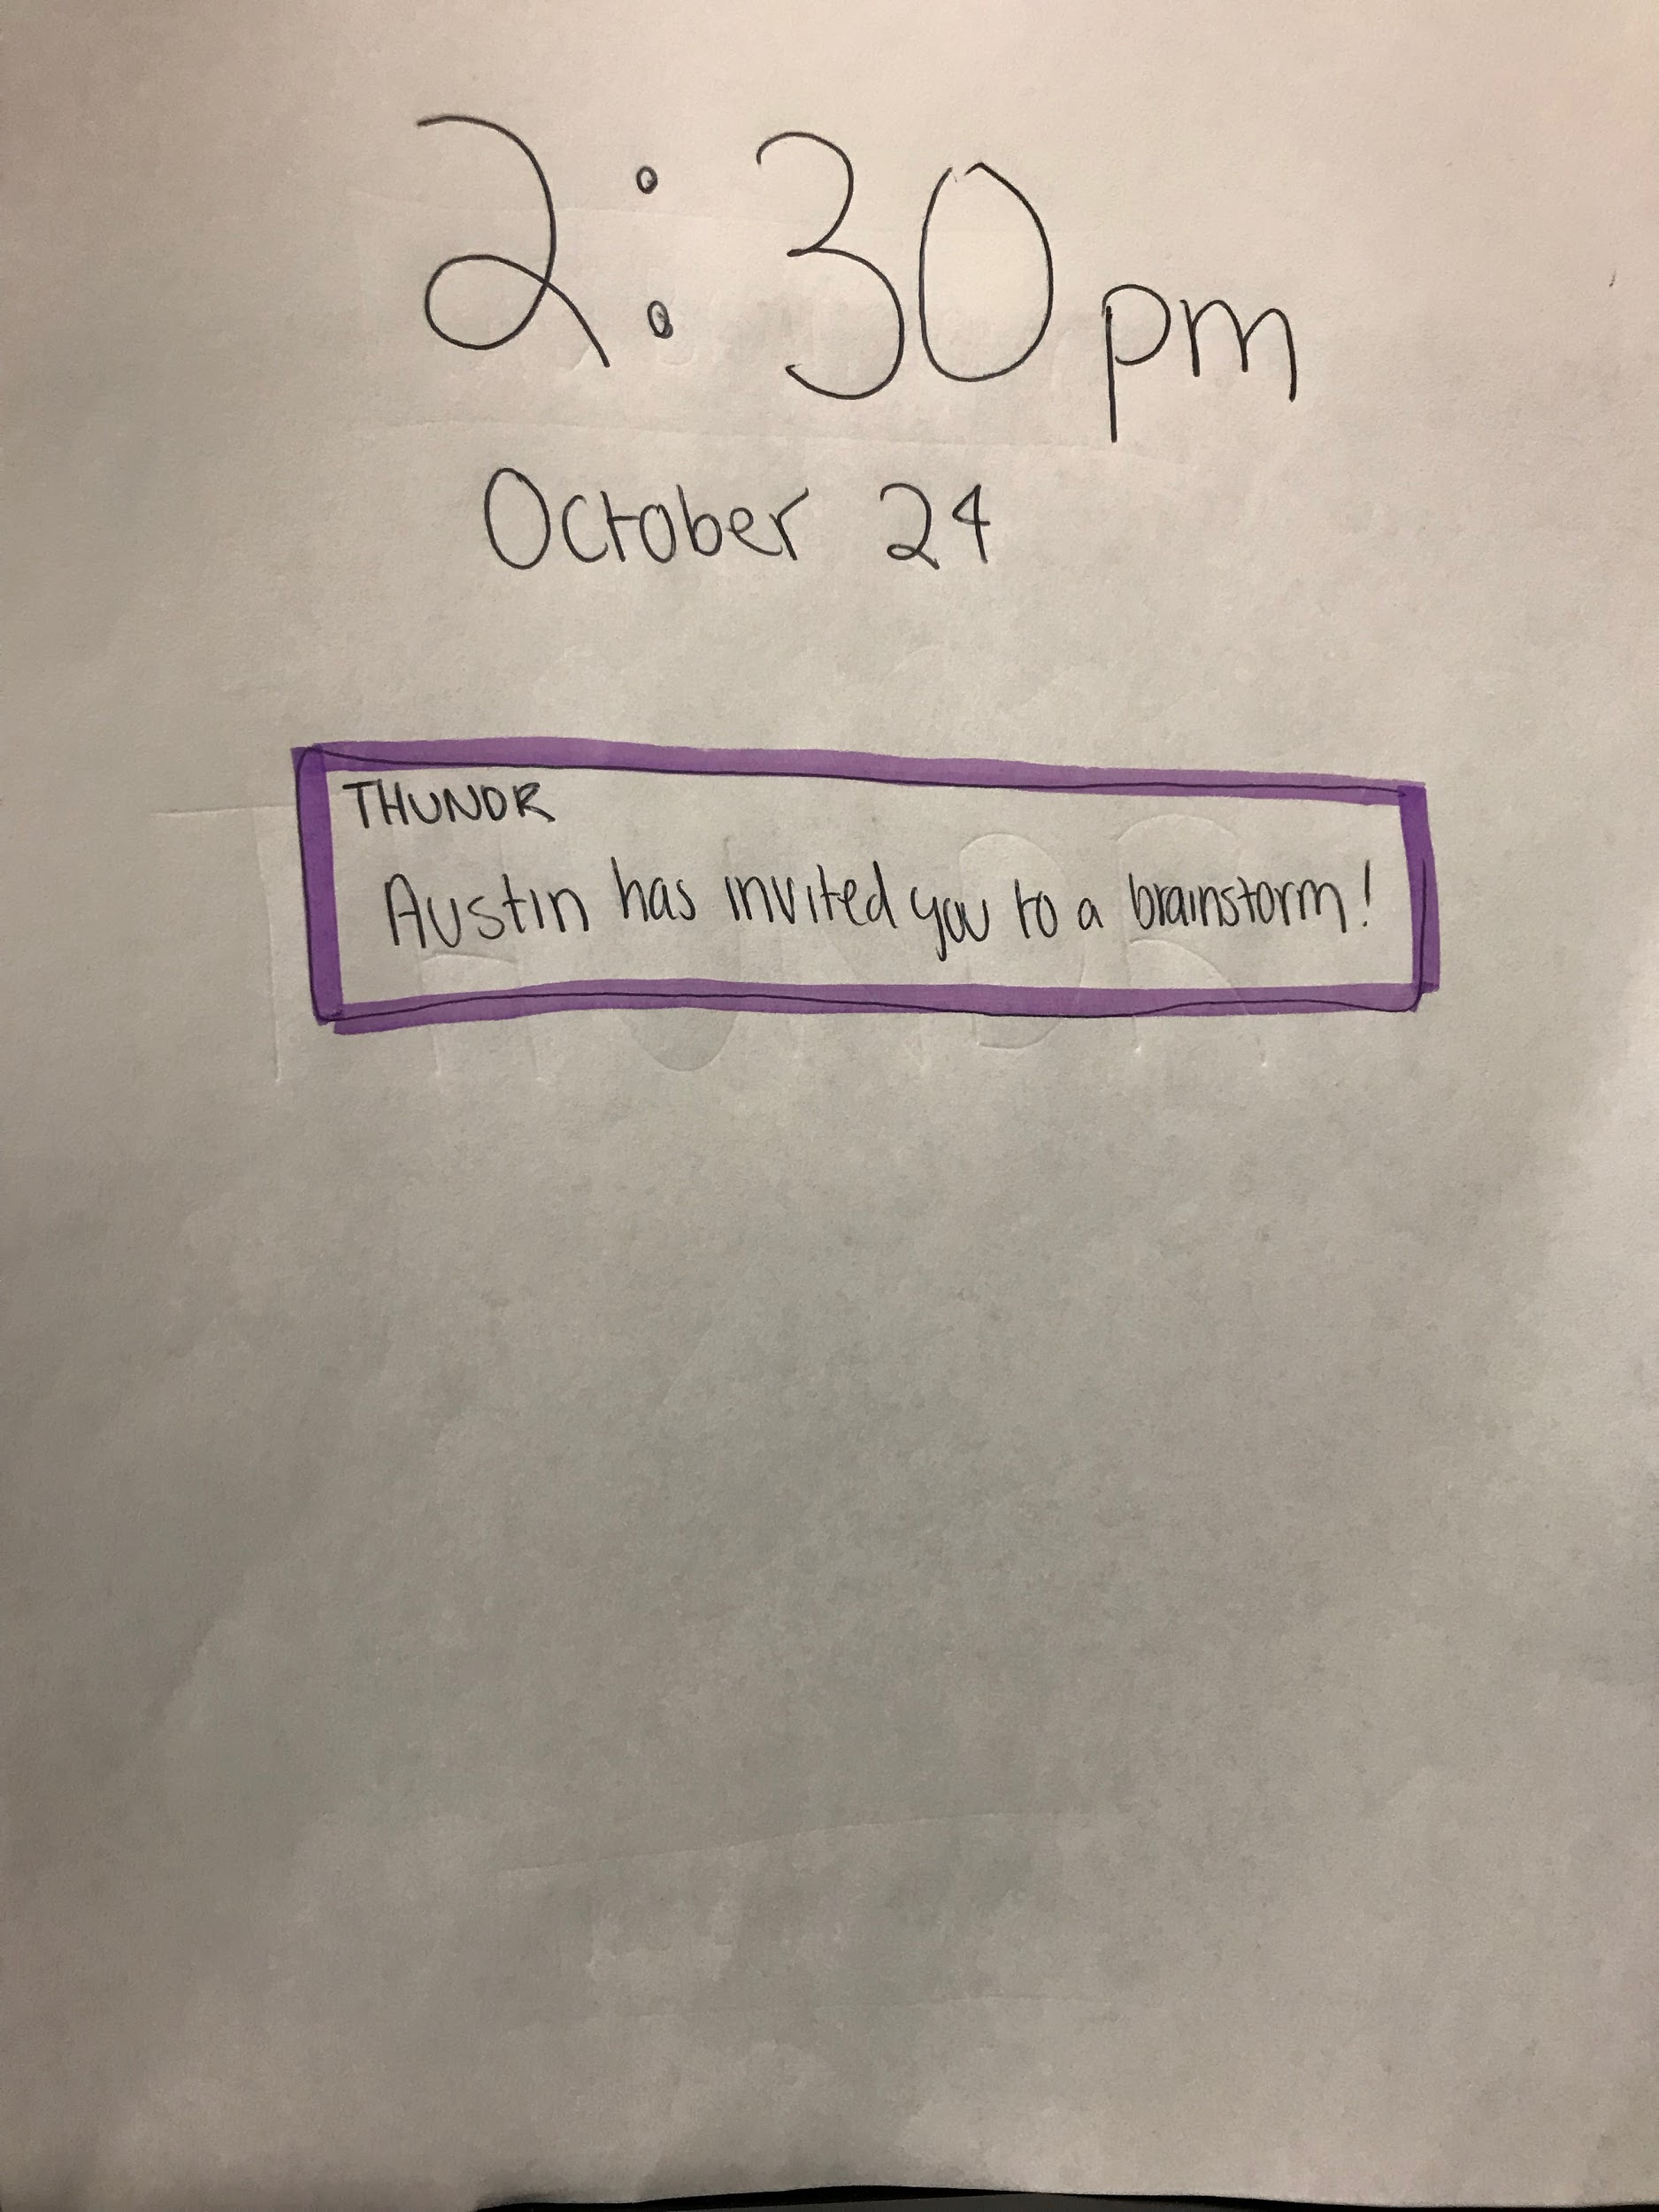 2:30 pm
October 24
THUNDR
Austin has invited you to a brainstorm!